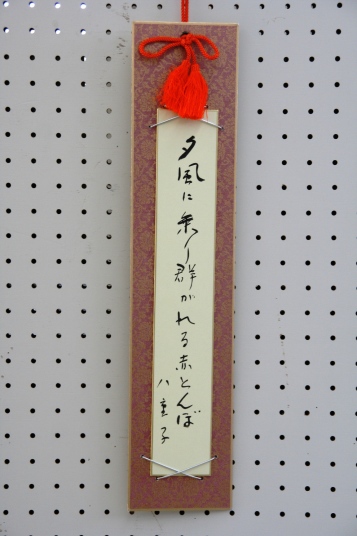 夕風に乗り群がれる赤とんぼ
八重子